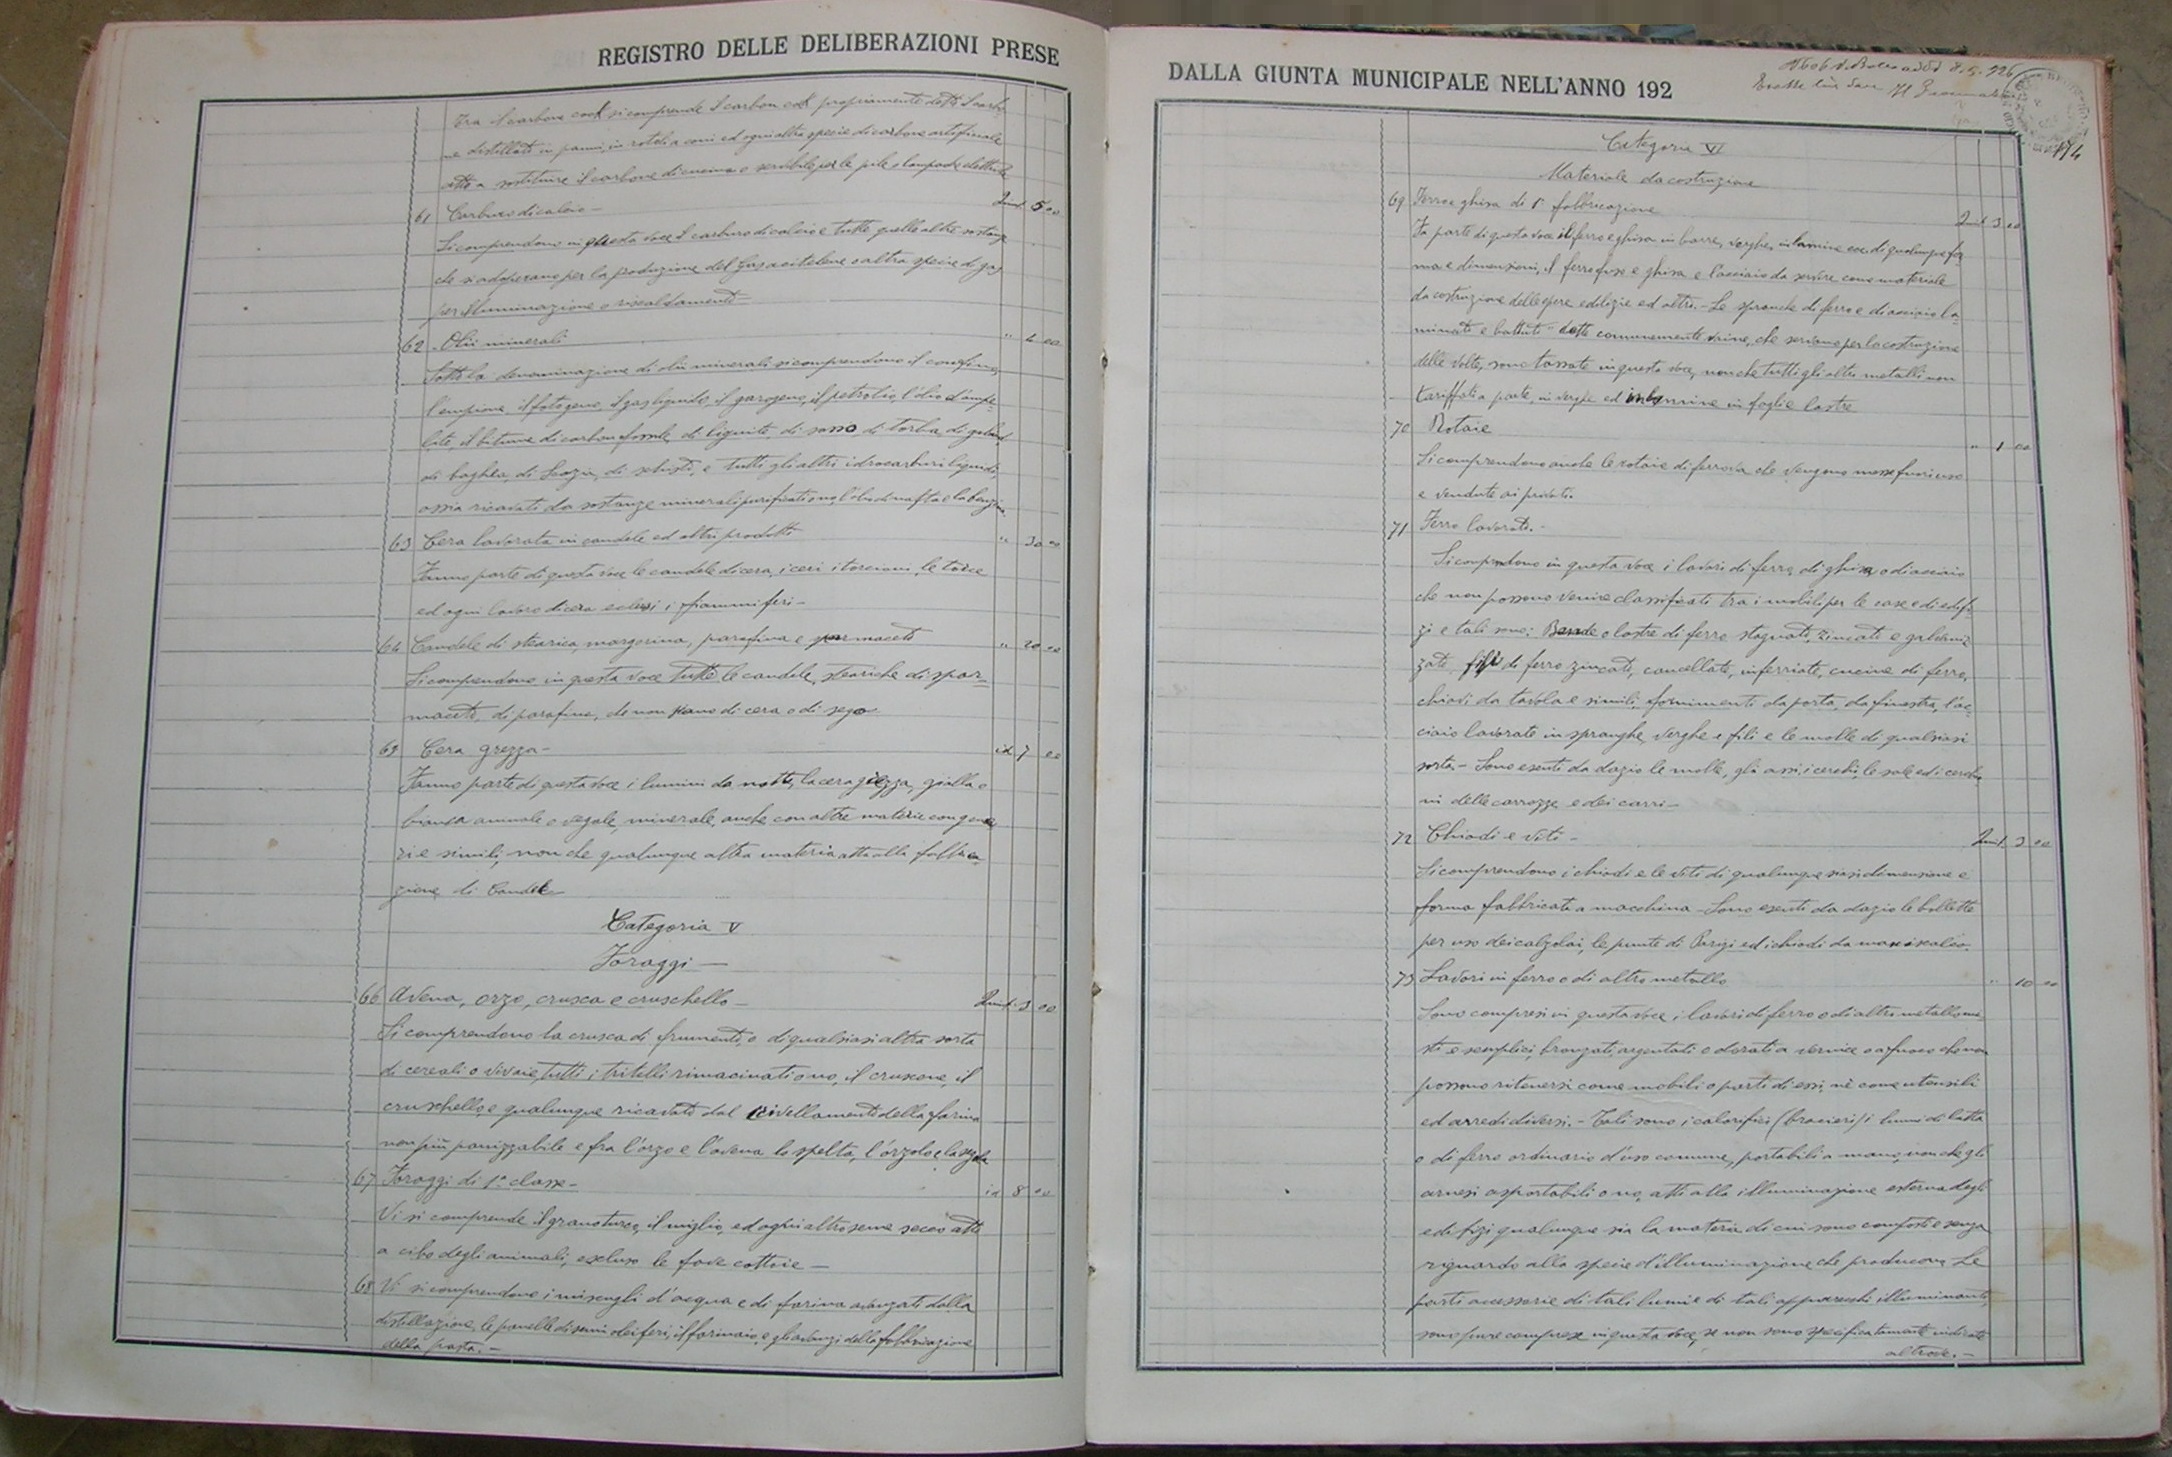 REGISTRO DELLE DELIBERAZIONI PRESE
Tra il carbone cook si comprende il carbon cok propriamente detto il carbo
ne distillato in panni, in rotoli a coni ed ogni altra specie di carbone artificiale
atto a sostituire il carbone di cucina o servibile per le pile o lampade elettriche
61 Carburo di calcio - Quint. 5 00
Si comprendono in questa voce il carburo di calcio e tutte quelle altre sostanze
che si adoperano per la produzione del gas acitelene o altra specie di gas
per illuminazione o riscaldamento =
62 Olii minerali " 4 00
Sotto la denominazione di olii minerali si comprendono il
l'empione, il fotogeno, il gas liquido, il gazogeno, il petrolio, l'olio
il bitume di carbon fossile, di lignite, di sasso, di torba, di
di boghea, di Scozia, di schisti, e tutti gli altri idrocarburi liquidi,
ossia ricavati da sostanze minerali purificati o no, l'olio di nafta e la benzina.
63 Cera lavorata in candele ed altri prodotti " 30 00
Fanno parte di questa voce le candele di cera, i ceri i torcioni, le torce
ed ogni lavoro di cera esclusi i fiammiferi -
64 Candele di stearica, margarina, parafina e spermaceti " 20 00
Si comprendono in questa voce tutte le candele steariche di sper-
maceti, di parafina, che non siano di cera o di sego
65 Cera grezza - id 7 00
Fanno parte di questa voce i lumini da notte, la cera grezza, gialla o
bianca animale o vegale, minerale, anche con altre materie congene
ri e simili, non che qualunque altra materia atta alla fabbrica
zione di candele
Categoria V
Foraggi -
66 Avena, orzo, crusca e cruschello - Quint. 3 00
Si comprendono la crusca di frumento o di qualsiasi altra sorta
di cereali o civaie, tutti i tritelli rimacinati o no, il cruscone, il
cruschello e qualunque ricavato dal crivellamento della farina
non più panizzabile e fra l'orzo e l'avena lo spelta, l'orzola e la segala
67 Foraggi di 1ª classe - id 8 00
Vi si comprende il granoturco, il miglio, ed ogni altro seme secco atto
a cibo degli animali, escluso le fave cottoie -
68 Vi si comprendono i miscugli d'acqua e di farina avanzati dalla
distillazione, le panelle di semi oleiferi, il farinaio, e gli avanzi della fabbricazione
della pasta. -
DALLA GIUNTA MUNICIPALE NELL'ANNO 192
8.5.926
194
Categoria VI
Materiale da costruzione
69 Ferro e ghisa di 1ª fabbricazione Quint 3 00
Fa parte di questa voce il ferro e ghisa in barre, verghe, in lamine ecc. di qualunque for
ma e dimensioni, il ferro fuso e ghisa e l'acciaio da servire come materiale
da costruzione delle opere edilizie ed altri. - Le spranche di ferro e di acciaio la-
minato e battuto dette comunemente trine, che servono per la costruzione
delle volte, sono tassate in questa voce, nonchè tutti gli altri metalli non
tariffati a parte, in verghe ed in lamine in foglie lastre
70 Rotaie " 1 00
Si comprendono anche le rotaie di ferrovia che vengono messe fuori uso
e vendute ai privati.
71 Ferro lavorato. -
Si comprendono in questa voce i lavori di ferro, di ghisa, o di acciaio
che non possono venire classificati tra i mobili per le case e di edifi
zi e tali sono: Bande o lastre di ferro stagnate, zincati e galvaniz
zate, fili di ferro zincati, cancellate, inferriate, cucine di ferro,
chiodi da tavola e simili, fornimenti da porta, da finestra, l'ac-
ciaio lavorato in spranghe, verghe e fili e le molle di qualsiasi
sorta. - Sono esenti da dazio le molle, gli assi, i cerchi, le sale ed i cerchio
ni delle carrozze e dei carri -
72 Chiodi e viti - Quint. 3 00
Si comprendono i chiodi e le viti di qualunque siasi dimensione e
forma fabbricati a macchina - Sono esenti da dazio le bollette
per uso dei calzolai, le punte di Parigi ed i chiodi da maniscalco.
73 Lavori in ferro o di altro metallo " 10 00
Sono compresi in questa voce, i lavori di ferro o di altro metallo mi
sti e semplici bronzati, argentati o dorati a vernice o a fuoco che non
possono ritenersi come mobili o parti di essi, nè come utensili
ed arredi diversi. - Tali sono i caloriferi (bracieri) i lumi di latta
o di ferro ordinario d'uso comune, portabili a mano, non che gli
arnesi asportabili o no, atti alla illuminazione esterna degli
edifizi qualunque sia la materia di cui sono composti e senza
riguardo alla specie d'illuminazione che producono. Le
parti accessorie di tali lumi e di tali apparecchi illuminanti,
sono pure comprese in questa voce, se non sono specificatamente indicate
altrove. -